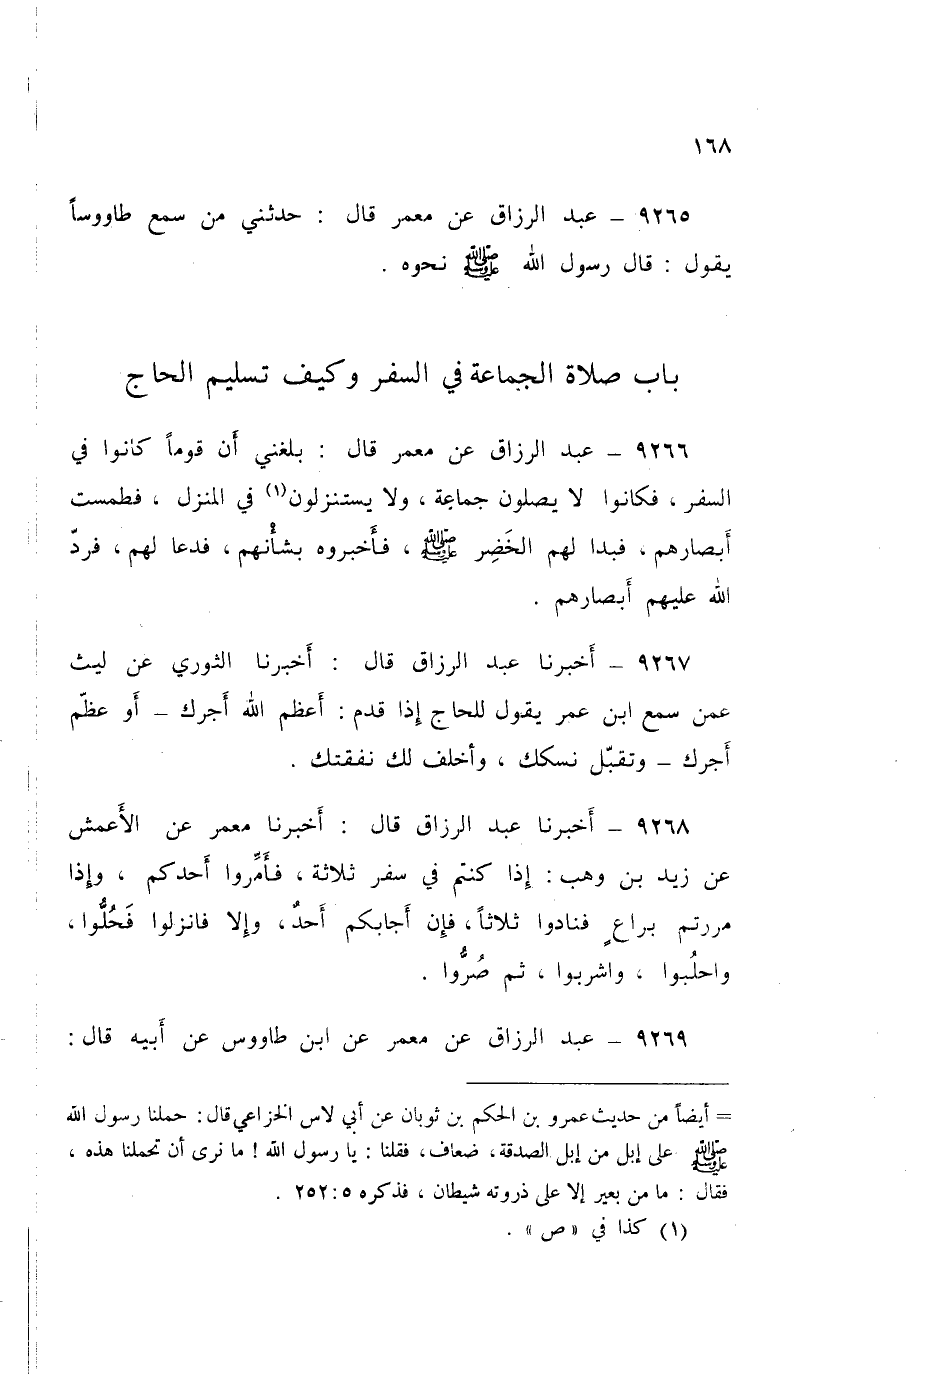 ١٦٨
٩٢٦٥ – عبد الرزاق عن معمر قال : حدثني من سمع طاووساً
يقول : قال رسول الله ﷺ نحوه .
باب صلاة الجماعة في السفر وكيف تسليم الحاج
٩٢٦٦ – عبد الرزاق عن معمر قال : بلغني أن قوماً كانوا في
السفر ، فكانوا لا يصلون جماعة ، ولا يستنزلون(١) في المنزل ، فطمست
أبصارهم ، فبدا لهم الخَضِر ﷺ ، فأخبروه بشأنهم ، فدعا لهم ، فردّ
الله عليهم أبصارهم .
٩٢٦٧ – أخبرنا عبد الرزاق قال : أخبرنا الثوري عن ليث
عمن سمع ابن عمر يقول للحاج إذا قدم : أعظم الله أجرك – أو عظّم
أجرك – وتقبّل نسكك ، وأخلف لك نفقتك .
٩٢٦٨ – أخبرنا عبد الرزاق قال : أخبرنا معمر عن الأعمش
عن زيد بن وهب : إذا كنتم في سفر ثلاثة ، فأَمِّروا أحدكم ، وإذا
مررتم براعٍ فنادوا ثلاثاً ، فإن أجابكم أحدٌ ، وإلا فانزلوا فَحُلُّوا ،
واحلُبوا ، واشربوا ، ثم صُرُّوا .
٩٢٦٩ – عبد الرزاق عن معمر عن ابن طاووس عن أبيه قال :
= أيضاً من حديث عمرو بن الحكم بن ثوبان عن أبي لاس الخزاعي قال : حملنا رسول الله
ﷺ على إبل من إبل الصدقة ، ضعاف ، فقلنا : يا رسول الله ! ما نرى أن تحملنا هذه ،
فقال : ما من بعير إلا على ذروته شيطان ، فذكره ٥ : ٢٥٢ .
(١) كذا في « ص » .